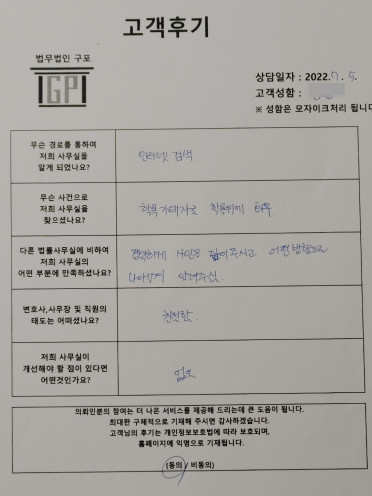 고객후기
법무법인 구포
GP
상담일자 : 2022.7.5.
고객성함 :
※ 성함은 모자이크처리 됩니다
무슨 경로를 통하여
저희 사무실을
알게 되었나요?
인터넷 검색.
무슨 사건으로
저희 사무실을
찾으셨나요?
학폭 가해자로
다른 법률사무실에 비하여
저희 사무실의
어떤 부분에 만족하셨나요?
명확하게 사안을 짚어주시고 어떤 방향으로
나아갈지 알려주심.
변호사,사무장 및 직원의
태도는 어떠셨나요?
친절함.
저희 사무실이
개선해야 할 점이 있다면
어떤것인가요?
없음
의뢰인분의 참여는 더 나은 서비스를 제공해 드리는데 큰 도움이 됩니다.
최대한 구체적으로 기재해 주시면 감사하겠습니다.
고객님의 후기는 개인정보보호법에 따라 보호되며,
홈페이지에 익명으로 기재됩니다.
(동의 / 비동의)